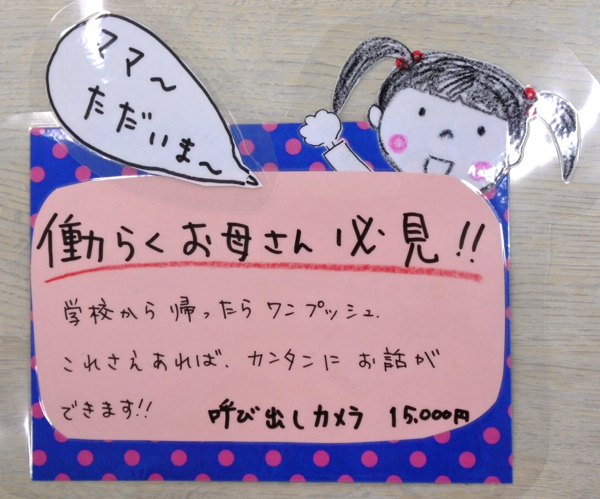 ママ～
ただいま～
働らくお母さん必見!!
学校から帰ったらワンプッシュ.
これさえあれば、カンタンにお話が
できます!!
呼び出しカメラ 15.000円